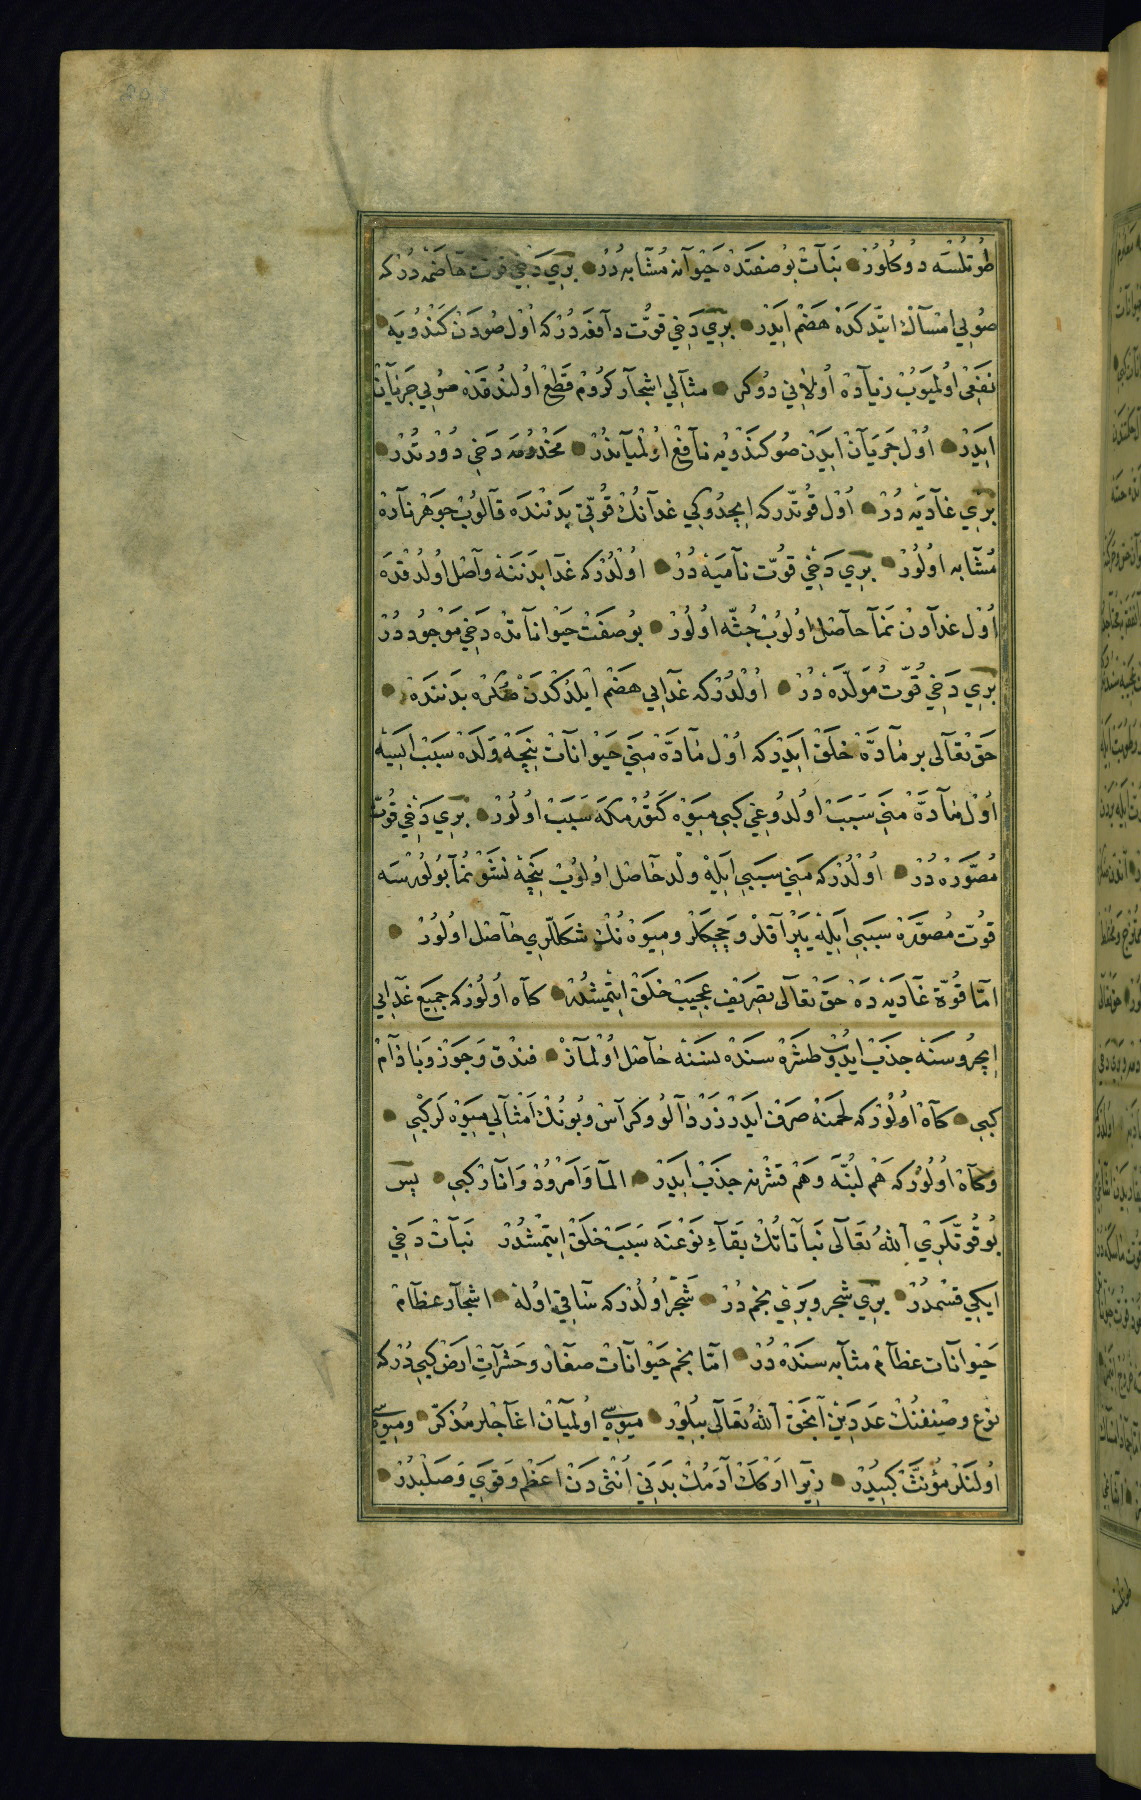 طوتلسه دوكلور نبات بو صفتده حيوانه مشابه در بري دخي قوت هاضمه در كه
صويي امساك ايتدكده هضم ايدر بري دخي قوت دافعه در كه اول صودن كندويه
نفعى اولميوب زياده اولاني دوكر مثالي اشجار كروم قطع اولندقده صويي جريان
ايدر اول جريان ايدن صو كندويه نافع اولمياندر مخدومه دخي دورتدر
بري غاديه در اول قوتدر كه ايچدوكي غدانك قوتي بدننده قالوب جوهر ناره
مشابه اولور بري دخي قوت ناميه در اولدر كه غدا بدننه واصل اولدقده
اول غدادن نما حاصل اولوب جثه اولور بو صفت حيواناتده دخي موجوددر
بري دخي قوت مولده در اولدر كه غدايي هضم ايلدكدن صكره بدننده
حق تعالى بر ماده خلق ايدر كه اول ماده منى حيوانات نيچه ولده سبب ايسه
اول ماده منى سبب اولدوغي كبي ميوه كتورمكه سبب اولور بري دخي قوت
مصوره در اولدر كه منى سببي ايله ولد حاصل اولوب نيچه نشو نما بولورسه
قوت مصوره سببي ايله يپراقلر و چچكلر و ميوه نك شكللري حاصل اولور
اما قوة غاديه ده حق تعالى تصريف عجيب خلق ايتمشدر كاه اولور كه جميع غدايي
ايچروسنه جذب ايدوب طشره سنده نسنه حاصل اولماز فندق و جوز و بادام
كبي كاه اولور كه لحمنه صرف ايدر زردالو و كراس و بونك امثالي ميوه لر كبي
و كاه اولور كه هم لبنه و هم قشرنه جذب ايدر الما و امرود و انار كبي پس
بو قوتلري الله تعالى نباتاتك بقاء نوعنه سبب خلق ايتمشدر نبات دخي
ايكي قسمدر بري شجر و بري نجم در شجر اولدر كه ساقي اوله اشجار عظام
حيوانات عظام مثابه سنده در اما نجم حيوانات صغار و حشرات ارض كبي در كه
نوع و صنفنك عددين انجق الله تعالى بيلور ميوه سي اولميان اغاجلر مذكر و ميوه سي
اولنلر مؤنث كبيدر زيرا اركك آدمك بدني انثى دن اعظم و قوي و صلبدر